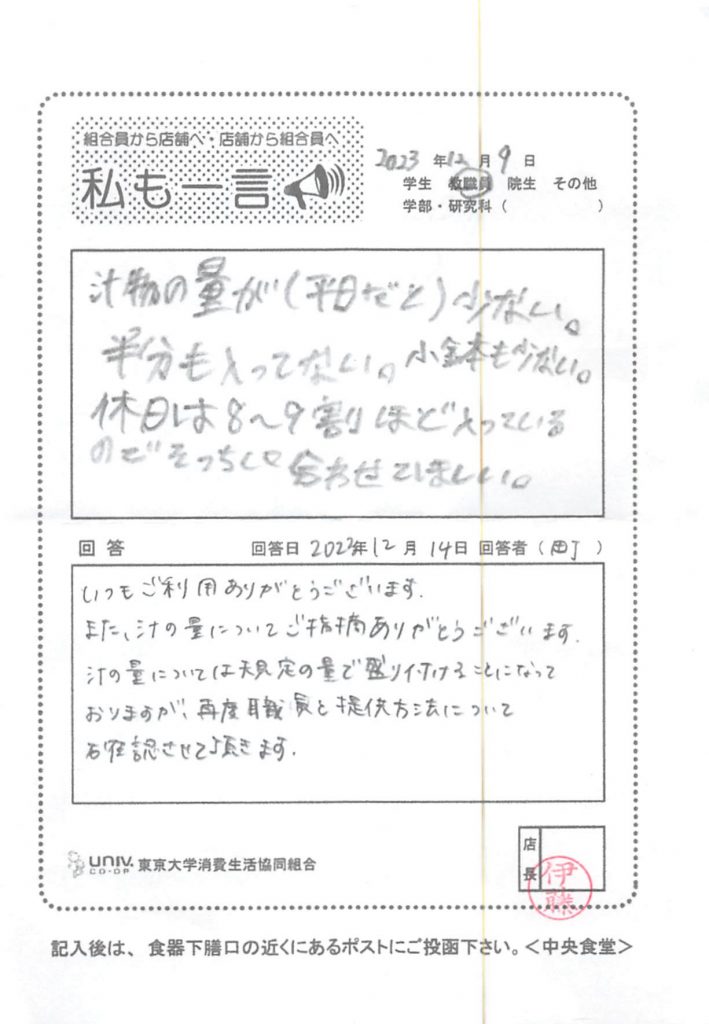 組合員から店舗へ・店舗から組合員へ
私も一言
2023年12月9日
学生 教職員 院生 その他
学部・研究科( )
汁物の量が(平日だと)少ない。
半分も入ってない。小鉢も少ない。
休日は8~9割ほど入っている
のでそっちに合わせてほしい。
回答 回答日 2023年12月14日 回答者( 町 )
いつもご利用ありがとうございます.
また、汁の量についてご指摘ありがとうございます.
汁の量については規定の量で盛り付けることになって
おりますが、再度職員と提供方法について
確認させて頂きます.
UNIV. CO-OP 東京大学消費生活協同組合
店長
伊藤
記入後は、食器下膳口の近くにあるポストにご投函下さい。<中央食堂>